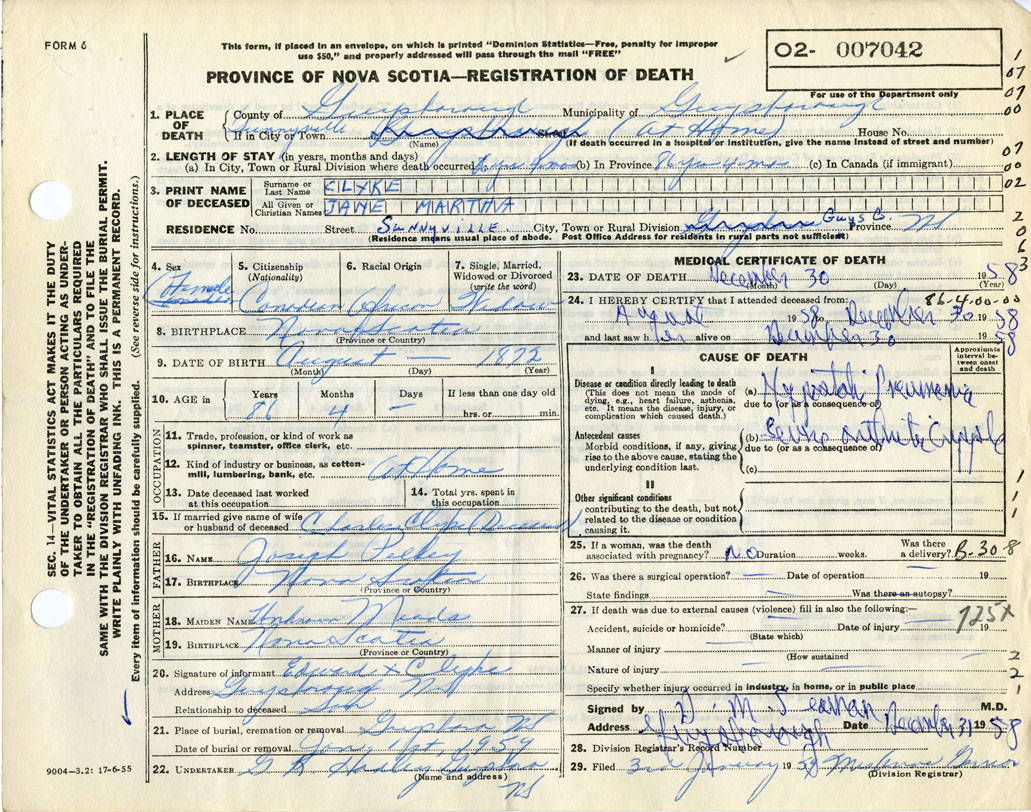 FORM 6
This form, if placed in an envelope, on which is printed "Dominion Statistics—Free, penalty for improper
use $50," and properly addressed will pass through the mail "FREE"
O2- 007042
PROVINCE OF NOVA SCOTIA—REGISTRATION OF DEATH
For use of the Department only
1. PLACE OF DEATH
County of Guysborough Municipality of Guysborough
If in City or Town Sunnyville Street (At Home) House No.
(Name) (If death occurred in a hospital or institution, give the name instead of street and number)
2. LENGTH OF STAY (in years, months and days)
(a) In City, Town or Rural Division where death occurred (b) In Province 86 yrs 4 mos (c) In Canada (if immigrant)
3. PRINT NAME OF DECEASED
Surname or Last Name CLYKE
All Given or Christian Names JANE MARTHA
RESIDENCE No. Street SUNNYVILLE City, Town or Rural Division Guys Co. Province NS
(Residence means usual place of abode. Post Office Address for residents in rural parts not sufficient)
4. Sex Female
5. Citizenship (Nationality) Canadian
6. Racial Origin
7. Single, Married, Widowed or Divorced (write the word) Widow
8. BIRTHPLACE Nova Scotia
(Province or Country)
9. DATE OF BIRTH August — 1872
(Month) (Day) (Year)
10. AGE in Years 86 Months 4 Days — If less than one day old
hrs. or min.
OCCUPATION
11. Trade, profession, or kind of work as
spinner, teamster, office clerk, etc.
12. Kind of industry or business, as cotton-
mill, lumbering, bank, etc. At Home
13. Date deceased last worked
at this occupation
14. Total yrs. spent in
this occupation
15. If married give name of wife
or husband of deceased Charles Clyke (Deceased)
FATHER
16. NAME Joseph
17. BIRTHPLACE Nova Scotia
(Province or Country)
MOTHER
18. MAIDEN NAME Unknown Meads
19. BIRTHPLACE Nova Scotia
(Province or Country)
20. Signature of informant Edward x Clyke
Address Guysboro NS
Relationship to deceased Son
21. Place of burial, cremation or removal Guysboro NS
Date of burial or removal Jany 1st, 1959
22. UNDERTAKER G R Guysboro
(Name and address) NS
9004—3.2: 17-6-55
MEDICAL CERTIFICATE OF DEATH
23. DATE OF DEATH December 30 1958
(Month) (Day) (Year)
86-4-00-00
24. I HEREBY CERTIFY that I attended deceased from:
August 1958 to December 30 1958
and last saw her alive on December 30 1958
CAUSE OF DEATH
Approximate interval between onset and death
I
Disease or condition directly leading to death
(This does not mean the mode of
dying, e.g., heart failure, asthenia,
etc. It means the disease, injury, or
complication which caused death.)
(a) Hypostatic Pneumonia
due to (or as a consequence of)
Antecedent causes
Morbid conditions, if any, giving
rise to the above cause, stating the
underlying condition last.
(b) Senile arthritic Cripple
due to (or as a consequence of)
(c)
II
Other significant conditions
contributing to the death, but not
related to the disease or condition
causing it.
25. If a woman, was the death
associated with pregnancy? no Duration weeks. Was there
a delivery? B-30-8
26. Was there a surgical operation? — Date of operation — 19
State findings Was there an autopsy?
27. If death was due to external causes (violence) fill in also the following:—
725x
Accident, suicide or homicide? Date of injury 19
(State which)
Manner of injury
(How sustained
Nature of injury
Specify whether injury occurred in industry, in home, or in public place
Signed by D. M. M.D.
Address Guysborough Date December 31 1958
28. Division Registrar's Record Number
29. Filed 3rd January 1959
(Division Registrar)
SEC. 14—VITAL STATISTICS ACT MAKES IT THE DUTY
OF THE UNDERTAKER OR PERSON ACTING AS UNDER-
TAKER TO OBTAIN ALL THE PARTICULARS REQUIRED
IN THE "REGISTRATION OF DEATH" AND TO FILE THE
SAME WITH THE DIVISION REGISTRAR WHO SHALL ISSUE THE BURIAL PERMIT.
WRITE PLAINLY WITH UNFADING INK. THIS IS A PERMANENT RECORD.
Every item of information should be carefully supplied. (See reverse side for instructions.)
1
07
07
00
07
02
2
0
6
3
1
1
1
2
2
1